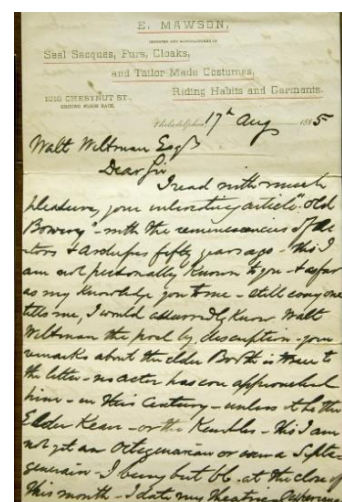 E. MAWSON,
IMPORTER AND MANUFACTURER OF
Seal Sacques, Furs, Cloaks,
and Tailor-Made Costumes,
Riding Habits and Garments.
1210 CHESTNUT ST.
SECOND FLOOR BACK.
Philadelphia 17th Aug 1885
Walt Whitman Esqr
Dear Sir
I read with much
pleasure, your interesting article "Old
Bowery" with the reminiscences of Ac
tors & fifty years ago - tho' I
am not personally Known to you - & as far
as my Knowledge you to me - still every one
tells me, I would assuredly Know Walt
Whitman the poet by description - your
remarks about the elder Booth is true to
the letter - no actor has ever approached
him - in this century - unless it be the
Elder Kean - or the Kembles - tho' I am
not yet an Octogenarian or even a Septa-
genarian - I being but 66 - at the close of
this month - I date my theatrical